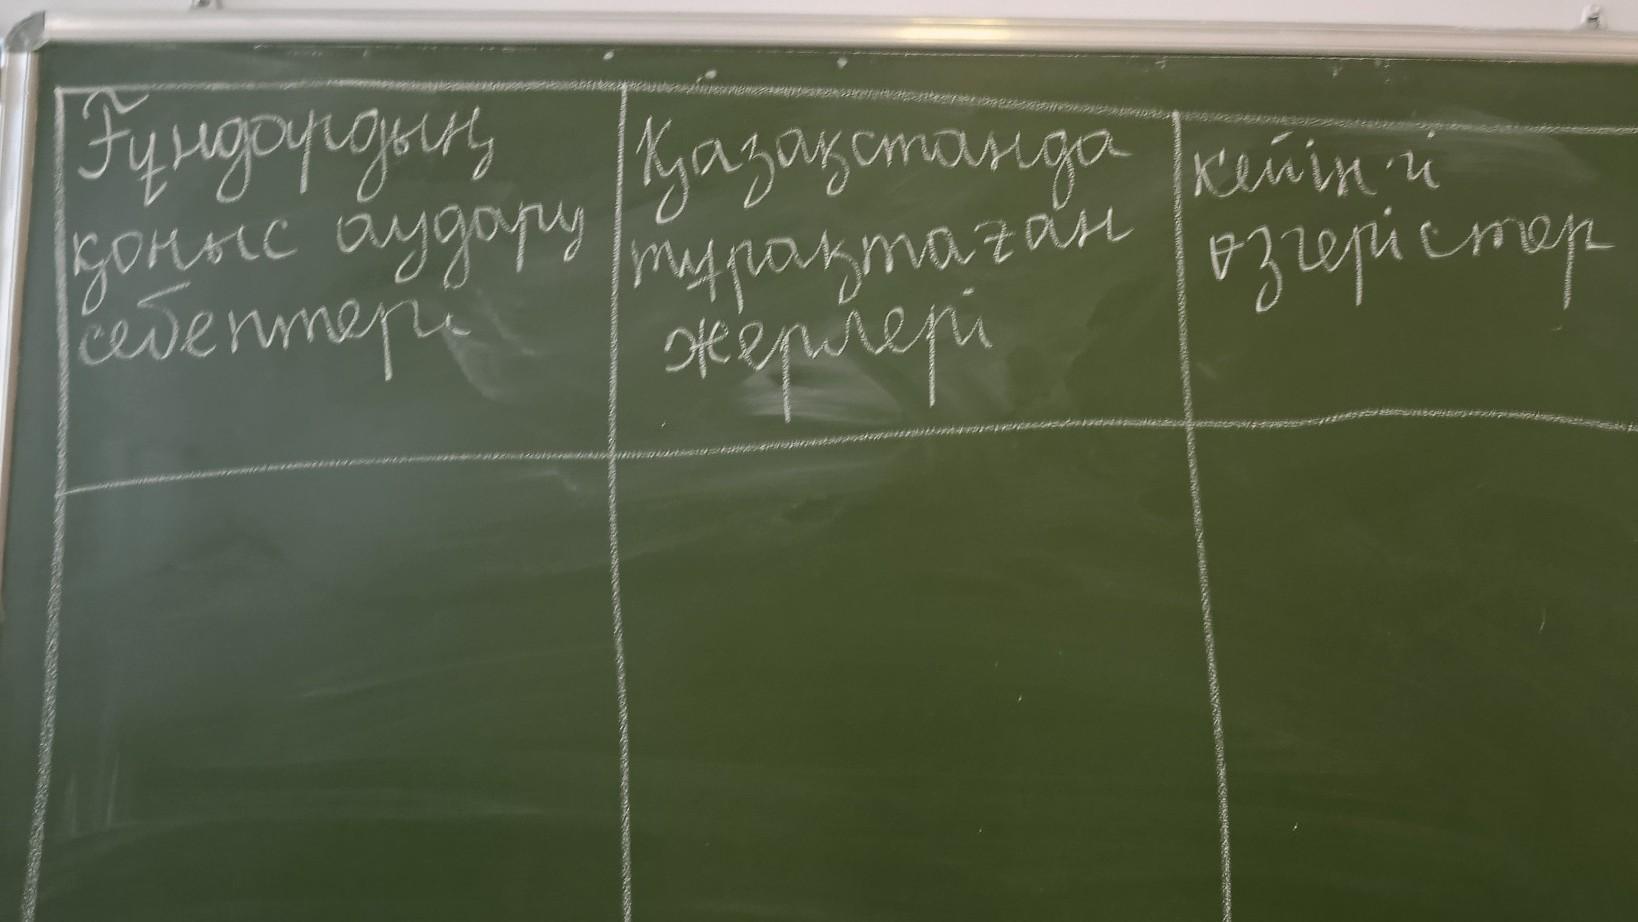 Ғұндардың
қоныс аудару
себептері
Қазақстанда
тұрақтаған
жерлері
кейінгі
өзгерістер